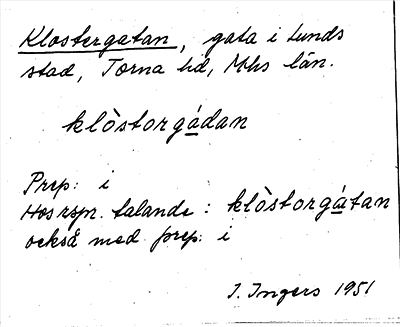 Klostergatan, gata i Lunds
stad, Torna hd, Mhs län.
klòstorgádan
Prep: i
Hos rspr. talande: klòstorgátan
också med prep: i
I. Ingers 1951